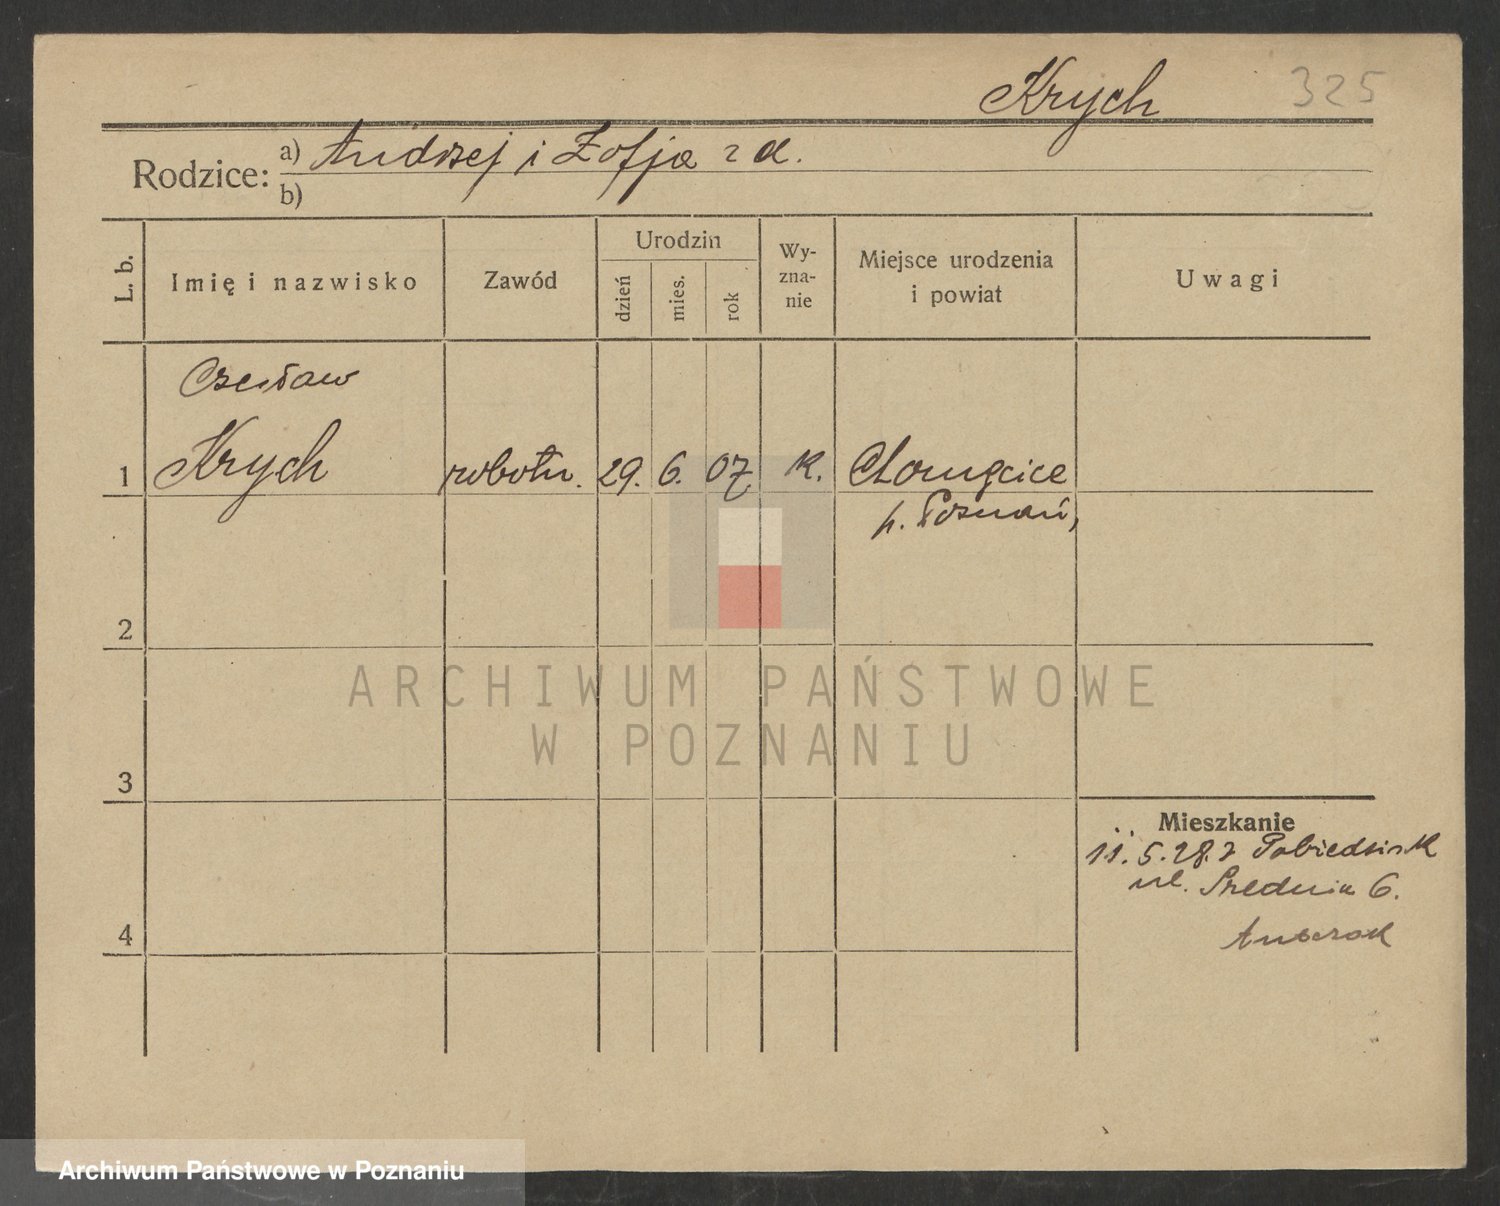 Krych 325
Rodzice: a) Andrzej i Zofja z d.
b)
L. b. Imię i nazwisko Zawód Urodzin dzień mies. rok Wyznanie Miejsce urodzenia i powiat Uwagi
Czesław
1 Krych robotn. 29. 6. 07 K. Chomęcice
p. Poznań,
2
ARCHIWUM PAŃSTWOWE
W POZNANIU
3
Mieszkanie
11. 5. 28. z Pobiedzisk
ul. Średnia 6.
4
Archiwum Państwowe w Poznaniu